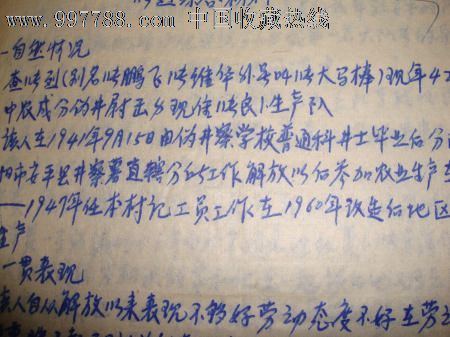 www.997788.com 中国收藏热线
一自然情况
查张到(别名张鹏飞张维华外号叫张大马棒)现年42
中农成分伪井尉击乡现住张良1生产队
该人在1941年9月15日由伪井察学校普通科井士毕业后分
阳市安平县井察署直辖分所工作解放以后参加农业生产
——1947年任本村记工员工作在1960年改造后地区
生产
一贯表现
该人自从解放以来表现不够好劳动态度不好在劳动